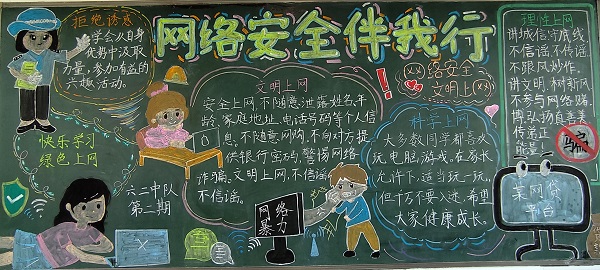 网络安全伴我行
拒绝诱惑
学会从自身
优势中汲取
力量，参加有益的
兴趣活动。
快乐学习
绿色上网
六二中队
第二期
文明上网
安全上网，不随意泄露姓名、年
龄、家庭地址、电话号码等个人信
息。不随意网购，不向对方提
供银行密码，警惕网络
诈骗，文明上网，不信谣，
不信谣。
网络
暴力
网络安全
文明上网
科学上网
大多数同学都喜欢
玩电脑游戏，在家长
允许下，适当玩一玩，
但千万不要入迷，希望
大家健康成长。
理性上网
讲诚信守底线
不信谣不传谣
不跟风炒作。
讲文明，树新风
不参与网络赌
博弘扬真善美
传递正
能量。
骗
某网贷
平台